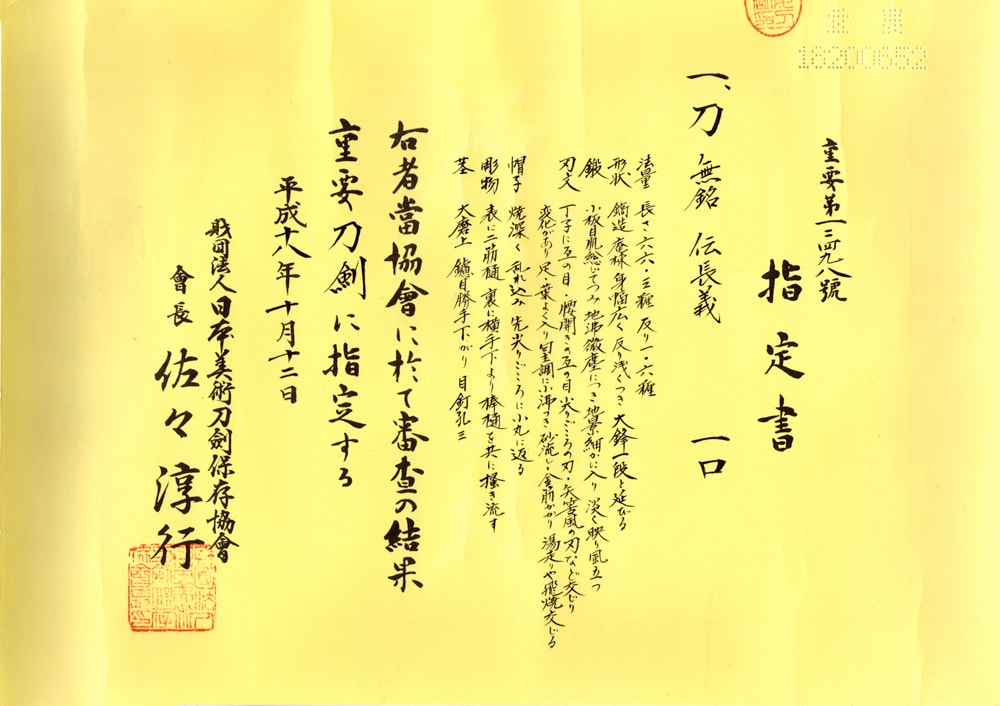 重要第一三四九八號
指定書
一、刀 無銘 伝長義 一口
法量 長さ 六六・三糎 反り 一・六糎
形状 鎬造 庵棟 身幅広く 反り浅くつき 大鋒一段と延びる
鍛 小板目肌総じてつみ 地沸微塵につき 地景細かに入り 淡く映り風立つ
刃文 丁子に互の目・腰開きの互の目 尖りごころの刃・矢筈風の刃など交じり
変化があり 足・葉よく入り 匂調に小沸つき 砂流し・金筋かかり 湯走りや飛焼交じる
帽子 焼深く 乱れ込み 先尖りごころに小丸に返る
彫物 表に二筋樋 裏に横手下より棒樋を共に掻き流す
茎 大磨上 鑢目勝手下がり 目釘孔三
右者當協會に於て審査の結果
重要刀剣に指定する
平成十八年十月十二日
財団法人日本美術刀剣保存協會
會長 佐々淳行
重要
18200652